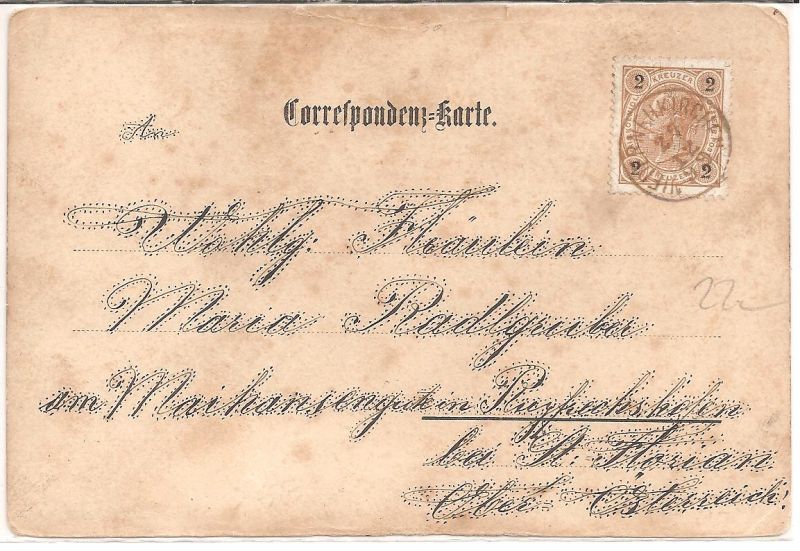 Correspondenz=Karte.
An
2 KREUZER 2
2 2
Wohlg: Fräulein
Maria Radlgruber
am Maihansengut in
bei St. Florian
Ober-Österreich:
22